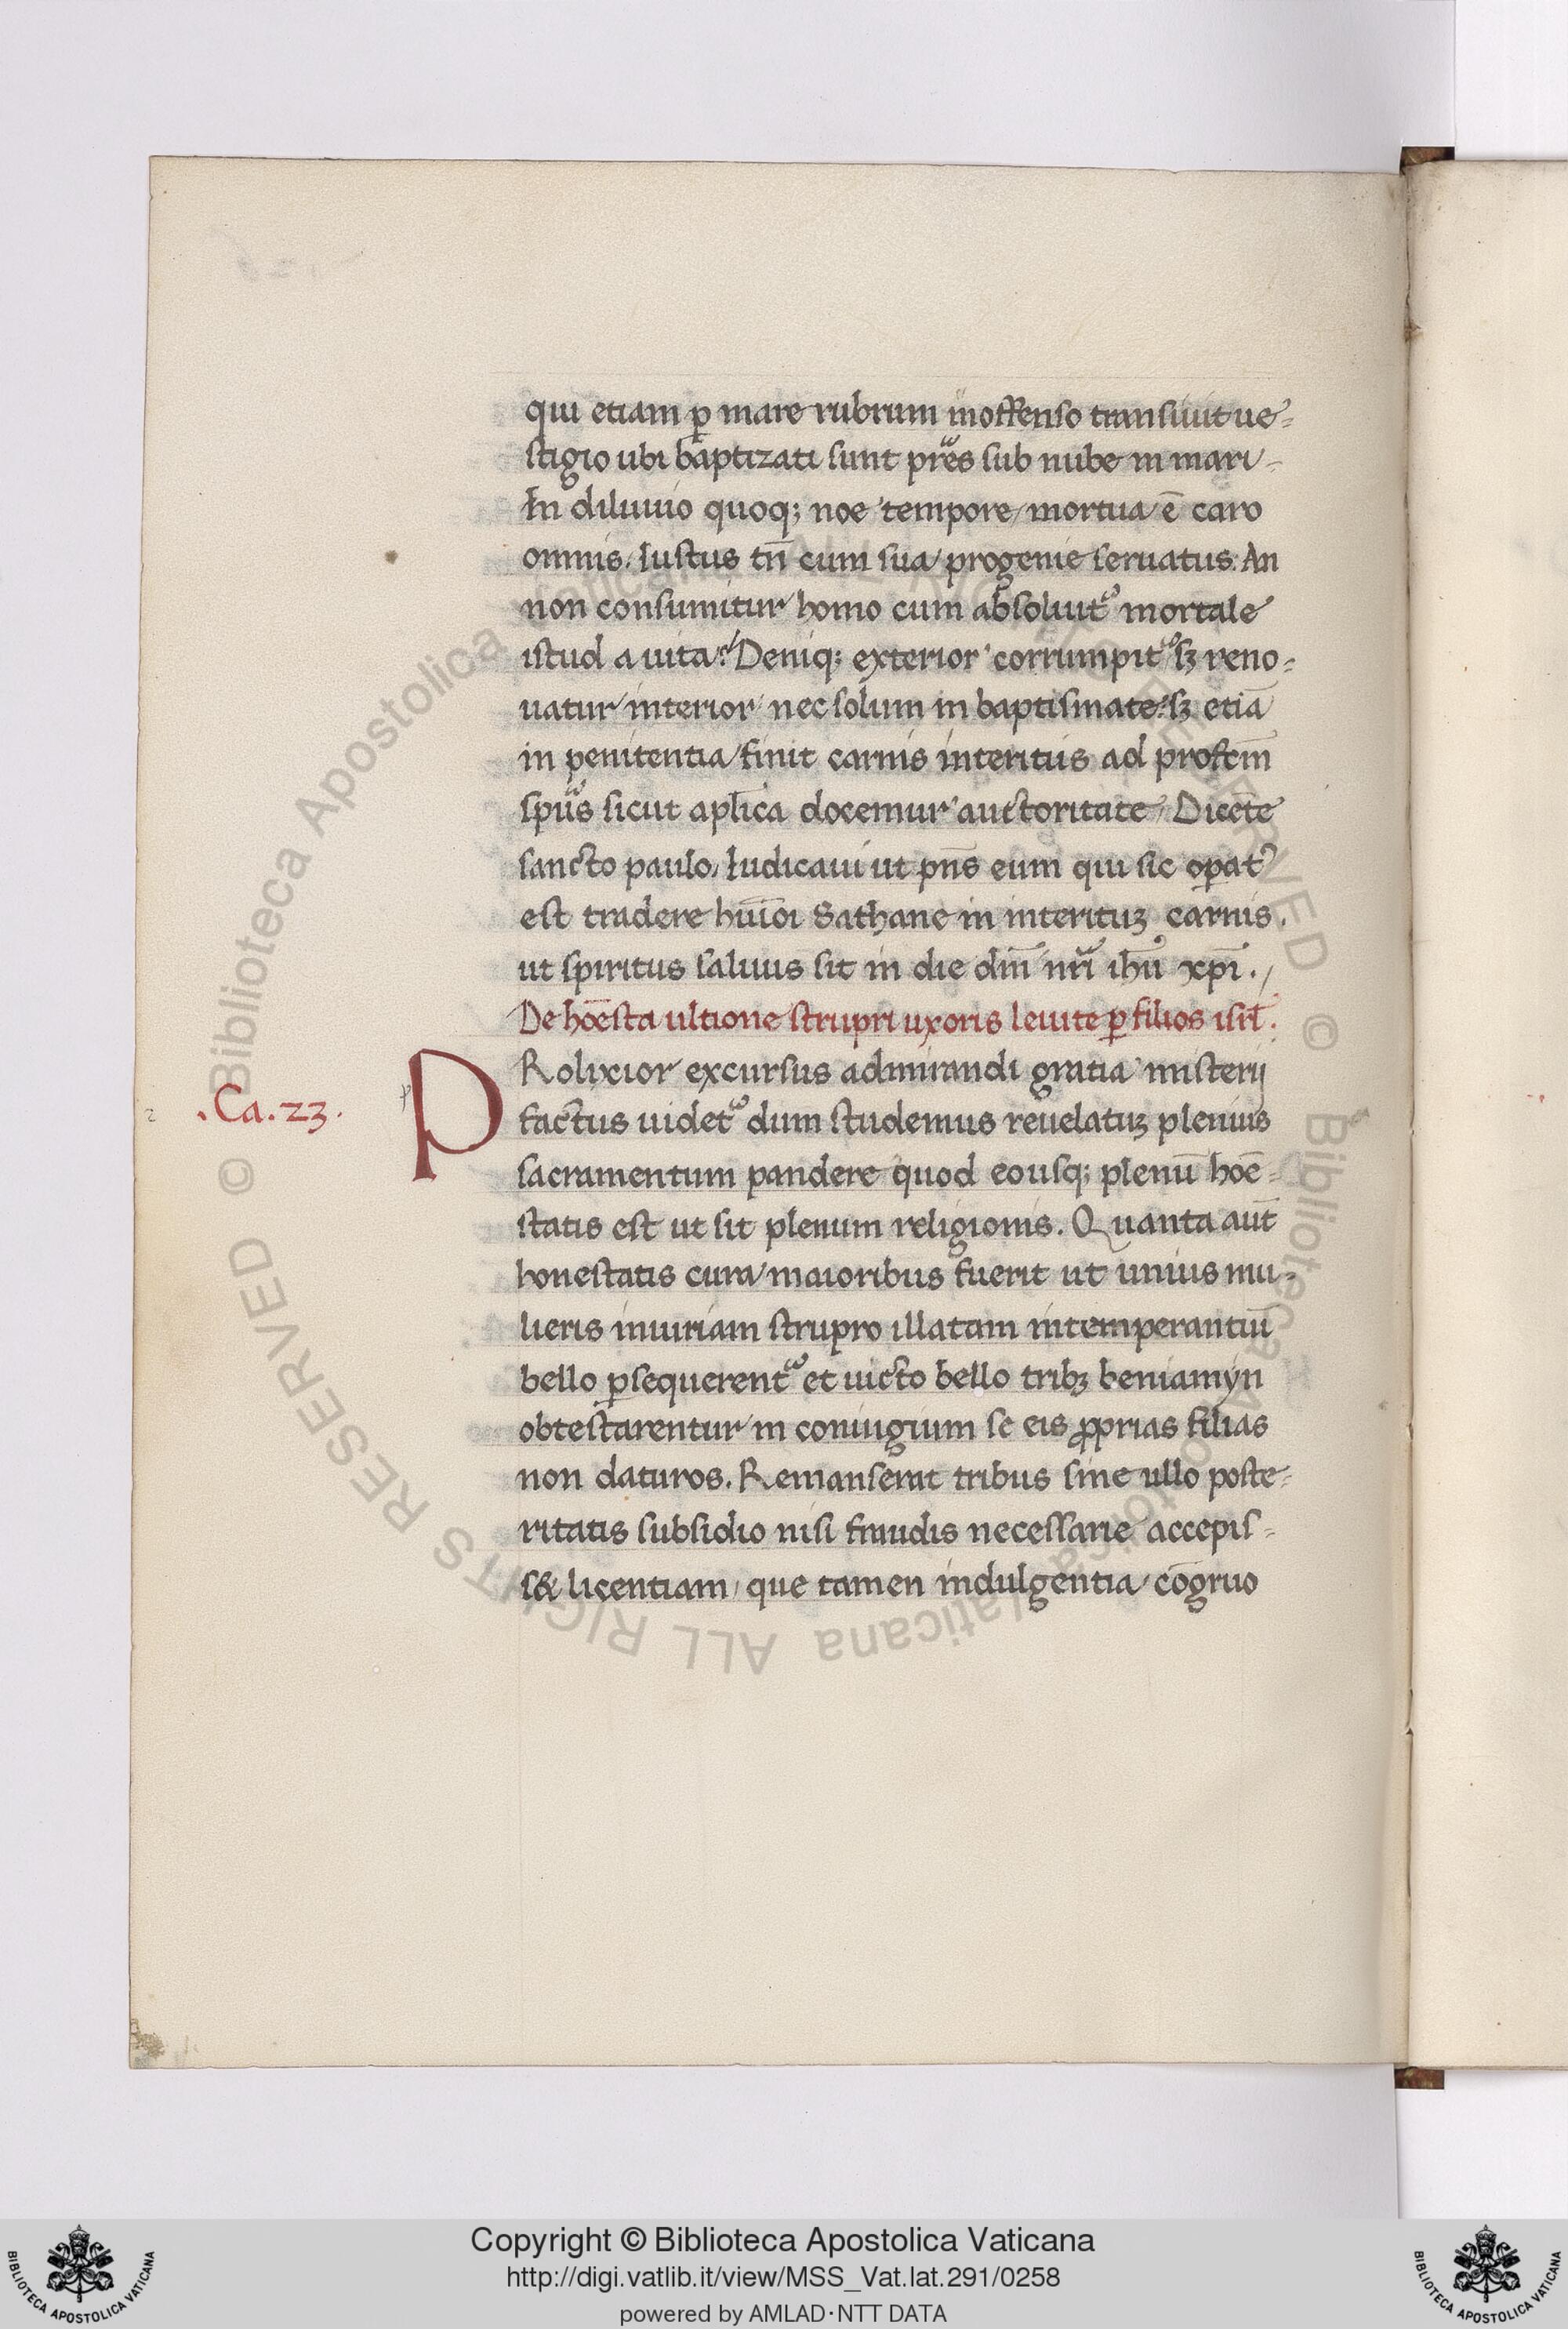 qui etiam ꝑ mare rubrum inoffenso transiuit ue-
stigio ubi baptizati sunt pr̃es sub nube in mari-
In diluuio quoq; noe tempore/mortua ē caro
omnis/ Iustus tn̄ cum sua progenie seruatus. An
non consumitur homo cum absoluit᷑ mortale
istud a uita? Deniq; exterior corrumpit᷑ sꝫ reno-
uatur interior nec solum in baptismate: sꝫ etiā
in penitentia finit carnis interitus ad profcm̄
sp̃us sicut aplica docemur auctoritate/ Dicete
sancto paulo/ Iudicaui ut pn̄s eum qui sic oꝑat᷑
est tradere hūiōi Sathane in interituꝫ carnis.
ut spiritus saluus sit in die dn̄i nr̃i ih̄u xp̄i./
De hōesta ultione strupri uxoris leuite ꝑ filios isrł.
.Ca.23.
PRolixior excursus admirandi gratia misterij
factus uidet᷑ dum studemus reuelatuꝫ plenius
sacramentum pandere quod eousq; plenū hōe-
statis est ut sit plenum religionis. Quanta aūt
honestatis cura maioribus fuerit ut unius mu-
lieris iniuriam strupro illatam intemperantiū
bello ꝑsequerent᷑ et uicto bello tribꝫ beniamyn
obtestarentur in coniugium se eis ꝓprias filias
non daturos. Remanserat tribus sine ullo poste-
ritatis subsidio nisi fraudis necessarie accepis-
s& licentiam/ que tamen indulgentia/ cōgruo
© Biblioteca Apostolica Vaticana ALL RIGHTS RESERVED
Copyright © Biblioteca Apostolica Vaticana
http://digi.vatlib.it/view/MSS_Vat.lat.291/0258
powered by AMLAD·NTT DATA
BIBLIOTECA APOSTOLICA VATICANA
BIBLIOTECA APOSTOLICA VATICANA